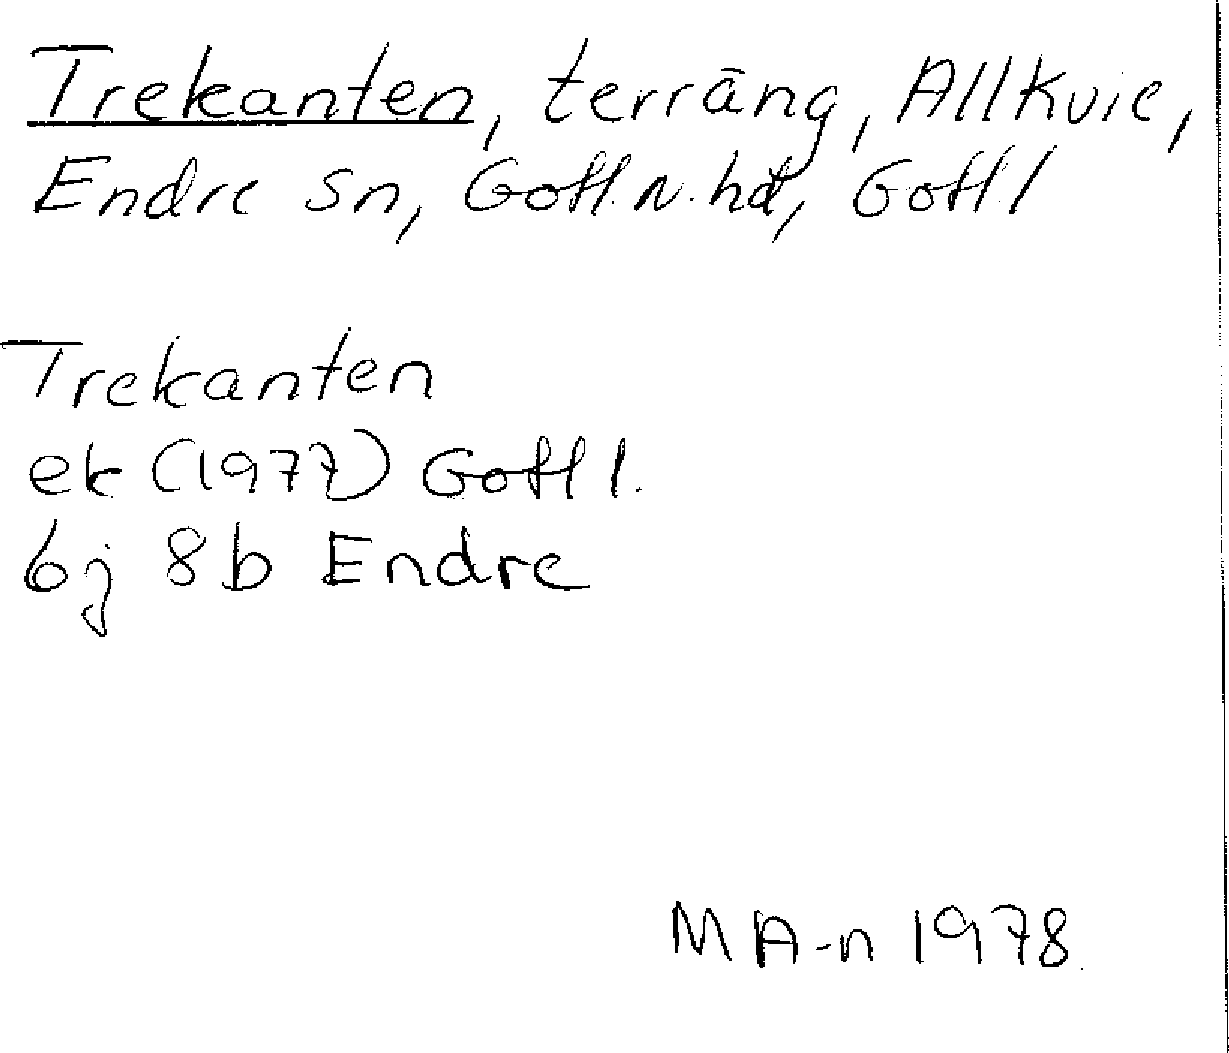 Trekanten, terräng, Allkvie,
Endre sn, Gotl. n. hd, Gotl
Trekanten
ek (1977) Gotl l.
6j 8b Endre
MA-n 1978